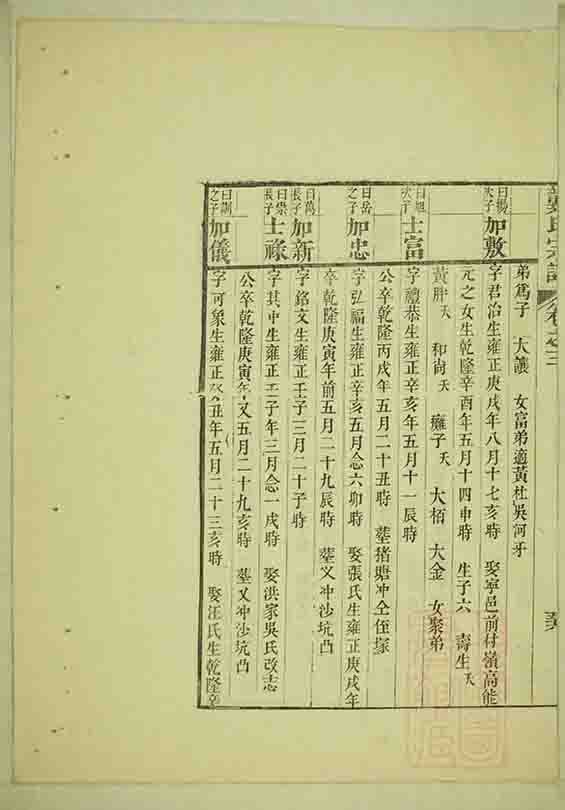 氏宗譜 卷之三
弟爲子 大讓 女富弟適黃杜吳河牙
曰揚次子 加敷 字君治生雍正庚戌年八月十七亥時 娶寧邑前村嶺高能
元之女生乾隆辛酉年五月十四申時 生子六 壽生夭
黃胖夭 和尚夭 癩子夭 大栢 大金 女聚弟
曰旭次子 士富 字禮恭生雍正辛亥年五月十一辰時
公卒乾隆丙戌年五月二十丑時 塟猪塘冲仝侄塚
曰岳之子 加忠 字弘福生雍正辛亥五月念六卯時 娶張氏生雍正庚戌年
卒乾隆庚寅年前五月二十九辰時 塟义冲沙坑凸
曰萬長子 加新 字銘文生雍正壬子三月二十子時
曰崇長子 士祿 字其中生雍正壬子年三月念一戌時 娶洪家吳氏改志
公卒乾隆庚寅年又五月二十九亥時 塟义冲沙坑凸
之子 加儀 字可象生雍正癸丑年五月二十三亥時 娶汪氏生乾隆辛